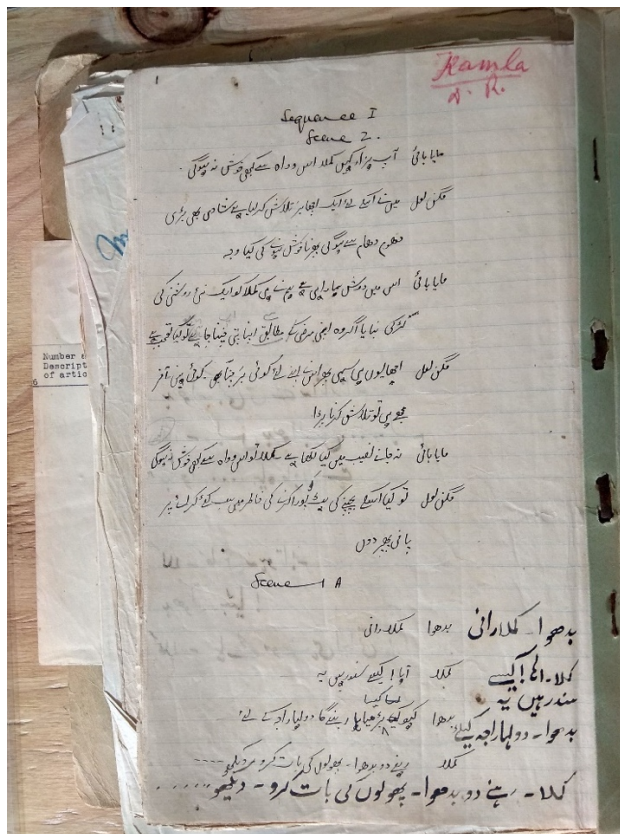 Kamla
D. R.
1
Sequance I
Scene 2.
مایا بائی آپ ہزار کہیں کملا اس وواہ سے کبھی خوش نہ ہوگی
مگن لعل میں نے اسکے لئے ایک اچھا بر تلاش کر لیا ہے شادی بھی بڑی
دھوم دھام سے ہوگی پھر ناخوش ہونے کی کیا وجہ
مایا بائی اس میں دوش ہمارا ہی ہے ہم نے ہی کملا کو ایک نئی روشنی کی
لڑکی بنایا اگر وہ اپنی مرضی کے مطابق اپنا پتی چننا چاہے تو کیا تعجب ہے
مگن لعل اچھا یوں ہی سہی پھر اس نے اپنے لئے کوئی بر چنا بھی کوئی نہیں آخر
مجھے ہی تو تلاش کرنا پڑا
مایا بائی نہ جانے نصیب میں کیا لکھا ہے کملا تو اس وواہ سے کبھی خوش نہ ہوگی
مگن لعل تو کیا اسکے بچپنے کی ہٹ کو پورا کرنے کی خاطر میں سب کئے کرائے پر
پانی پھیر دوں
Scene 1 A
بدھوا کملا رانی
بدھوا - کملا رانی
کملا آہا! کیسے سندر ہیں یہ
کملا - آہا! کیسے
سندر ہیں یہ
بدھوا دولہا راجہ کے لئے
بدھوا - دولہا راجہ کیلئے
کملا رہنے دو بدھوا - پھولوں کی بات کرو - دیکھو .....
کملا - رہنے دو بدھوا - پھولوں کی بات کرو - دیکھو ......
Number
Descript
of artic
6